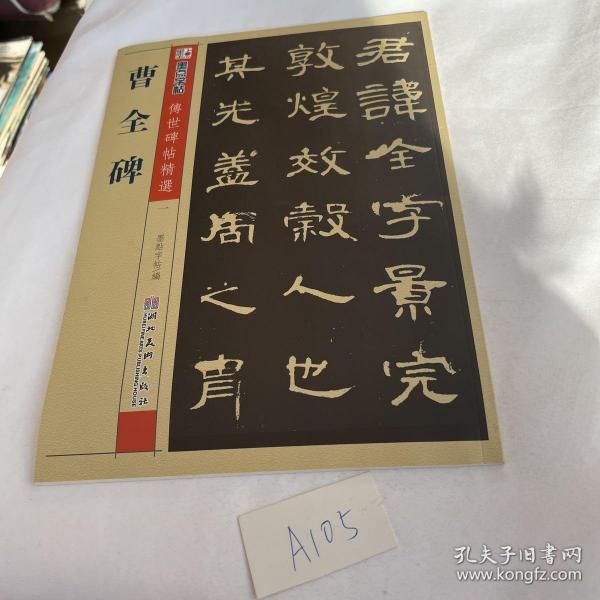 君諱全字景完
敦煌效穀人也
其先蓋周之胄
墨点字帖
傳世碑帖精選
一
墨點字帖編
湖北美術出版社
HUBEI FINE ARTS PUBLISHING HOUSE
曹全碑
A105
孔夫子旧书网
www.kongfz.com